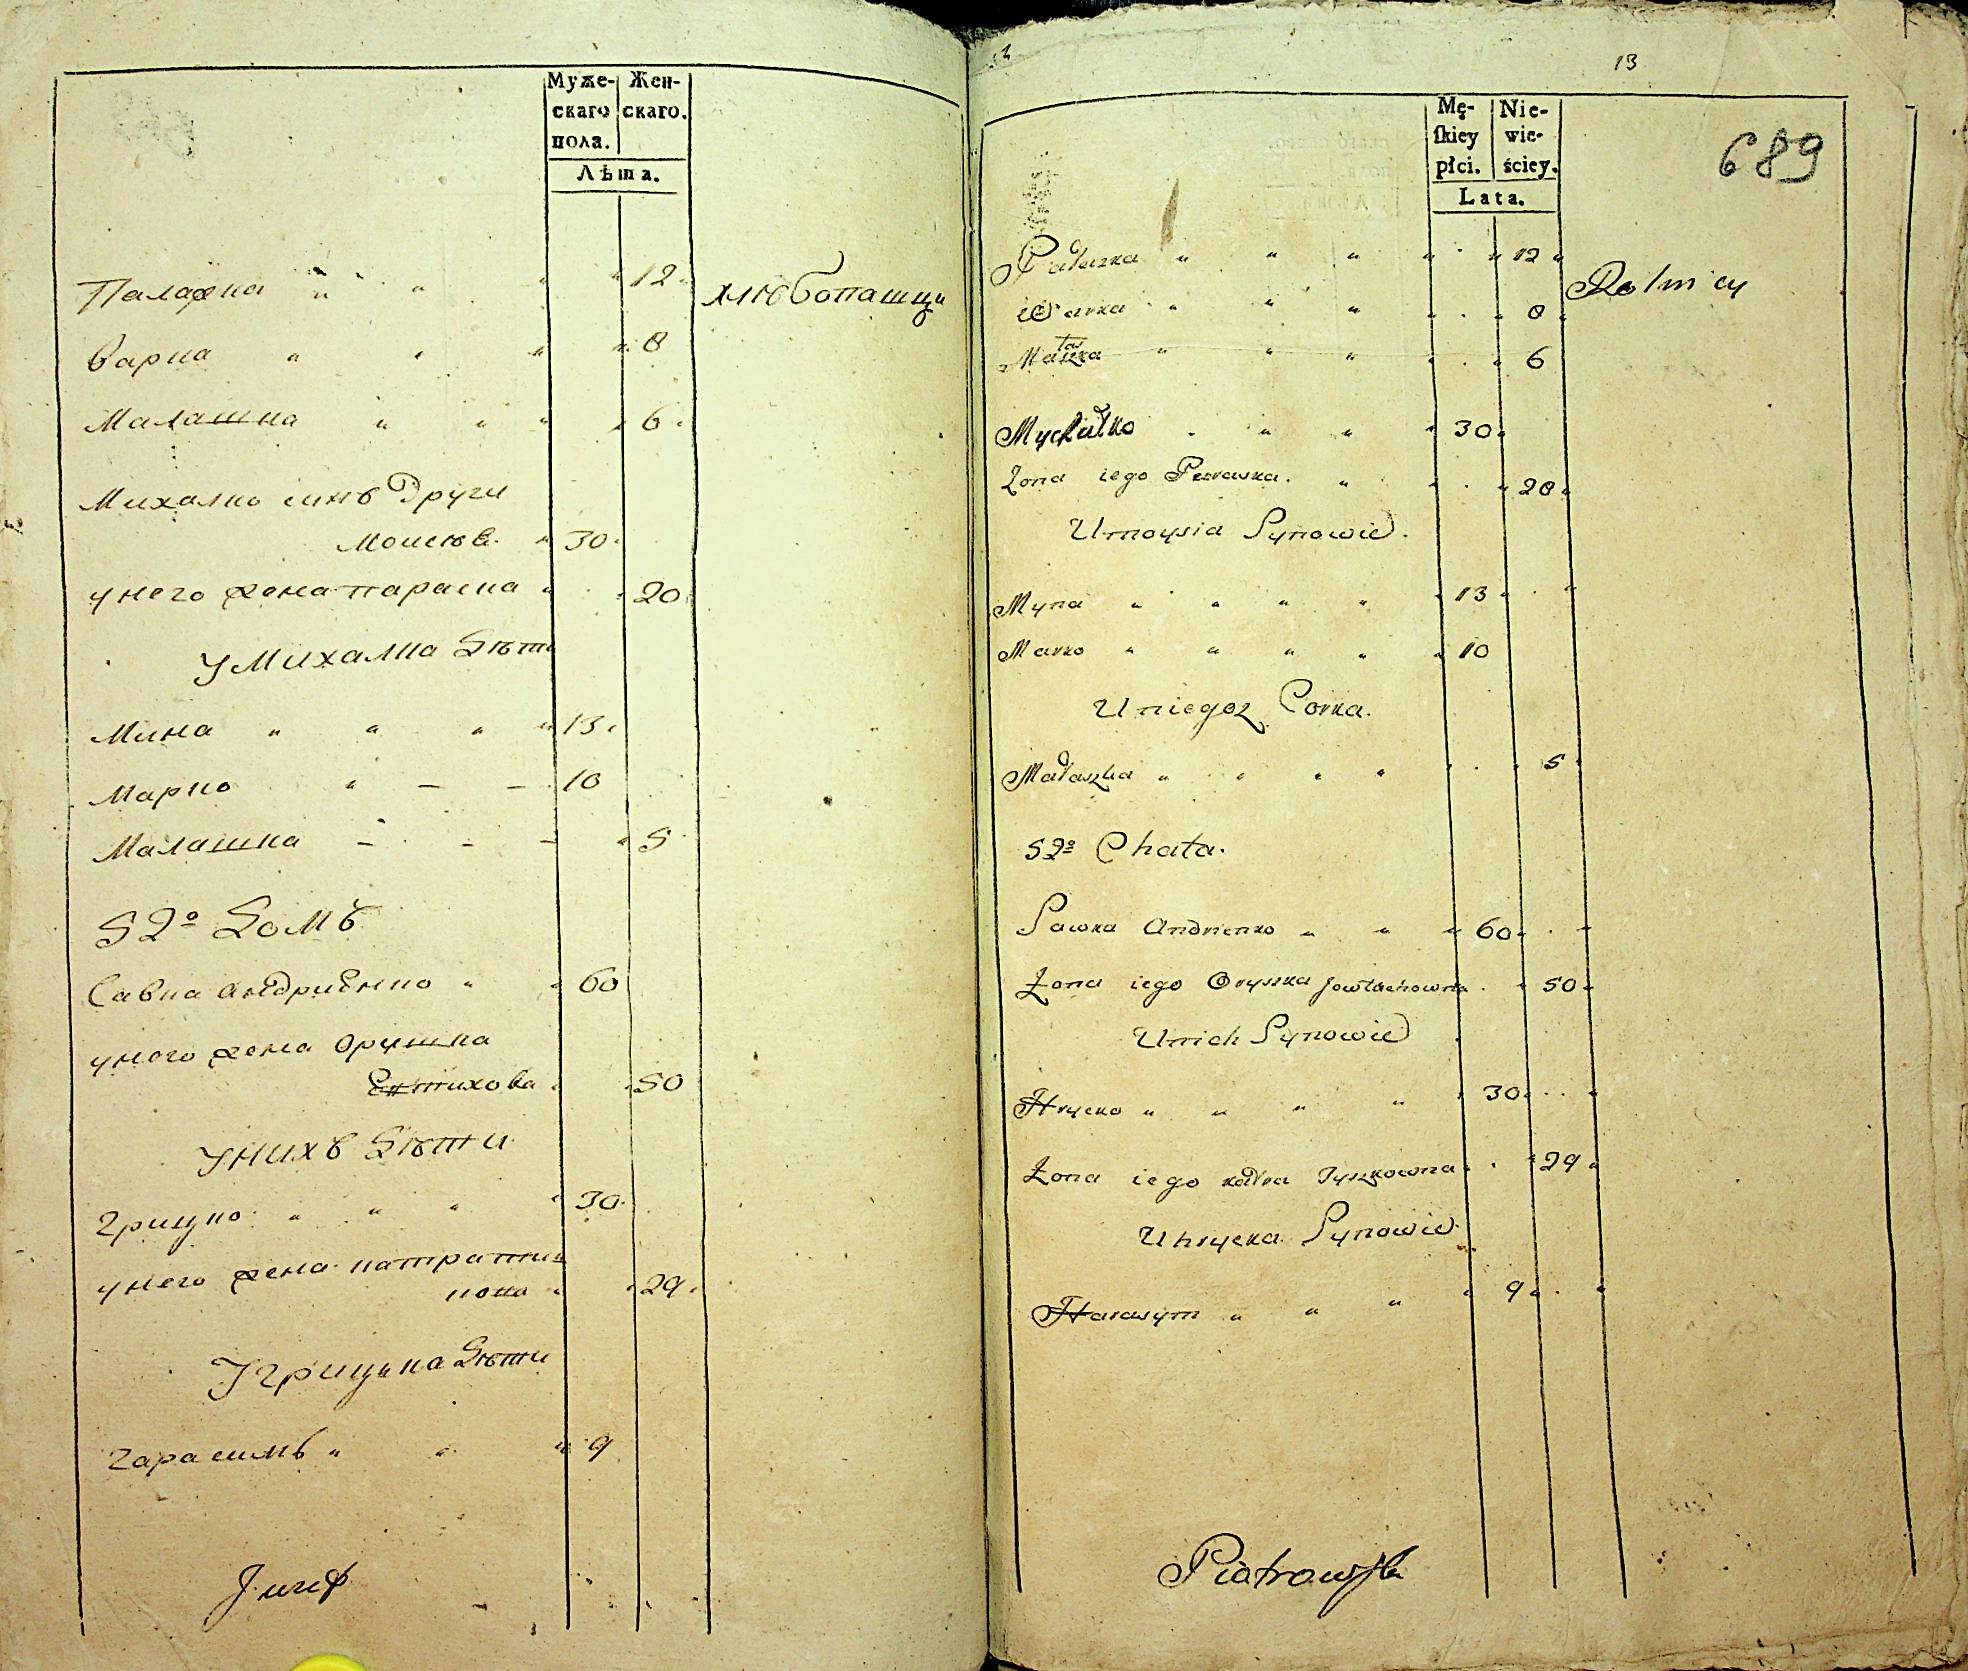 Муже-
скаго
пола.
Жен-
скаго.
Лѣта.
Палажка " " " " 12
хлѣбопашци
Варка " " " " 8
Малашка " " " " 6
Михалко синъ Други
Моисѣя " 30
унего жена параска " 20
У Михалка Дѣти
Мина " " " " 13
Марко " 10
Малашка " 5
52º Домъ
Савка Андриенко " " 60
унего жена Орушка
Евтихова " 50
Унихъ Дѣти
Грицко " " " " 30
унего жена катра тиш
кова " 29
У грицка Дѣти
Гарасимъ " " " 9
13
689
Mę-
skiey
płci.
Nie-
wie-
ściey.
Lata.
Pałaszka " " " " " 12
Rolnicy
Warka " " " " 8
Małaszka " " " " 6
Mychałko " " " 30
Zona iego Paraska " " " 20
Umoysia Synowie.
Myna " " " " 13
Marko " " " " 10
Uniegoz Corka.
Małaszka " " " " 5
52º Chata.
Sawka Andrienko " " " 60
Żona iego Oryszka Jowtuchowna " 50
Unich Synowie
Hrycko " " " " 30
Żona iego katra Tyszkowna " 29
Uhrycka Synowie
Harasym " " " " 9
Piotrowski